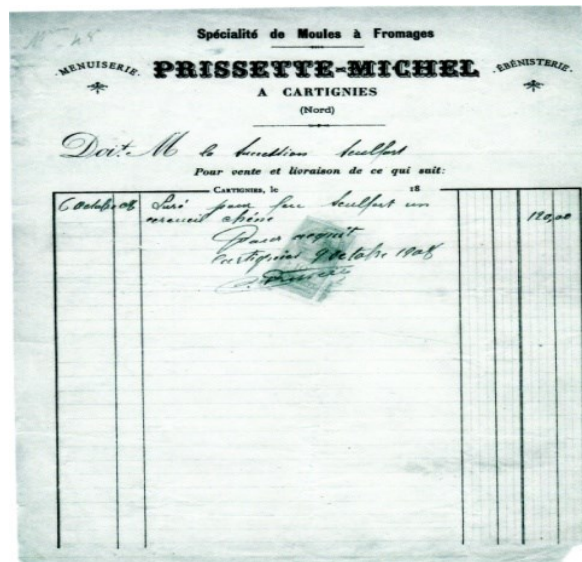 N° 48
Spécialité de Moules à Fromages
MENUISERIE. PRISSETTE-MICHEL ÉBÉNISTERIE.
A CARTIGNIES
(Nord)
Doit M la succession Seulfort
Pour vente et livraison de ce qui suit:
CARTIGNIES, le 18
6 octobre 08 Livré pour feu Seulfort un
cercueil chêne 120,00
Pour acquit
Cartignies 9 octobre 1908